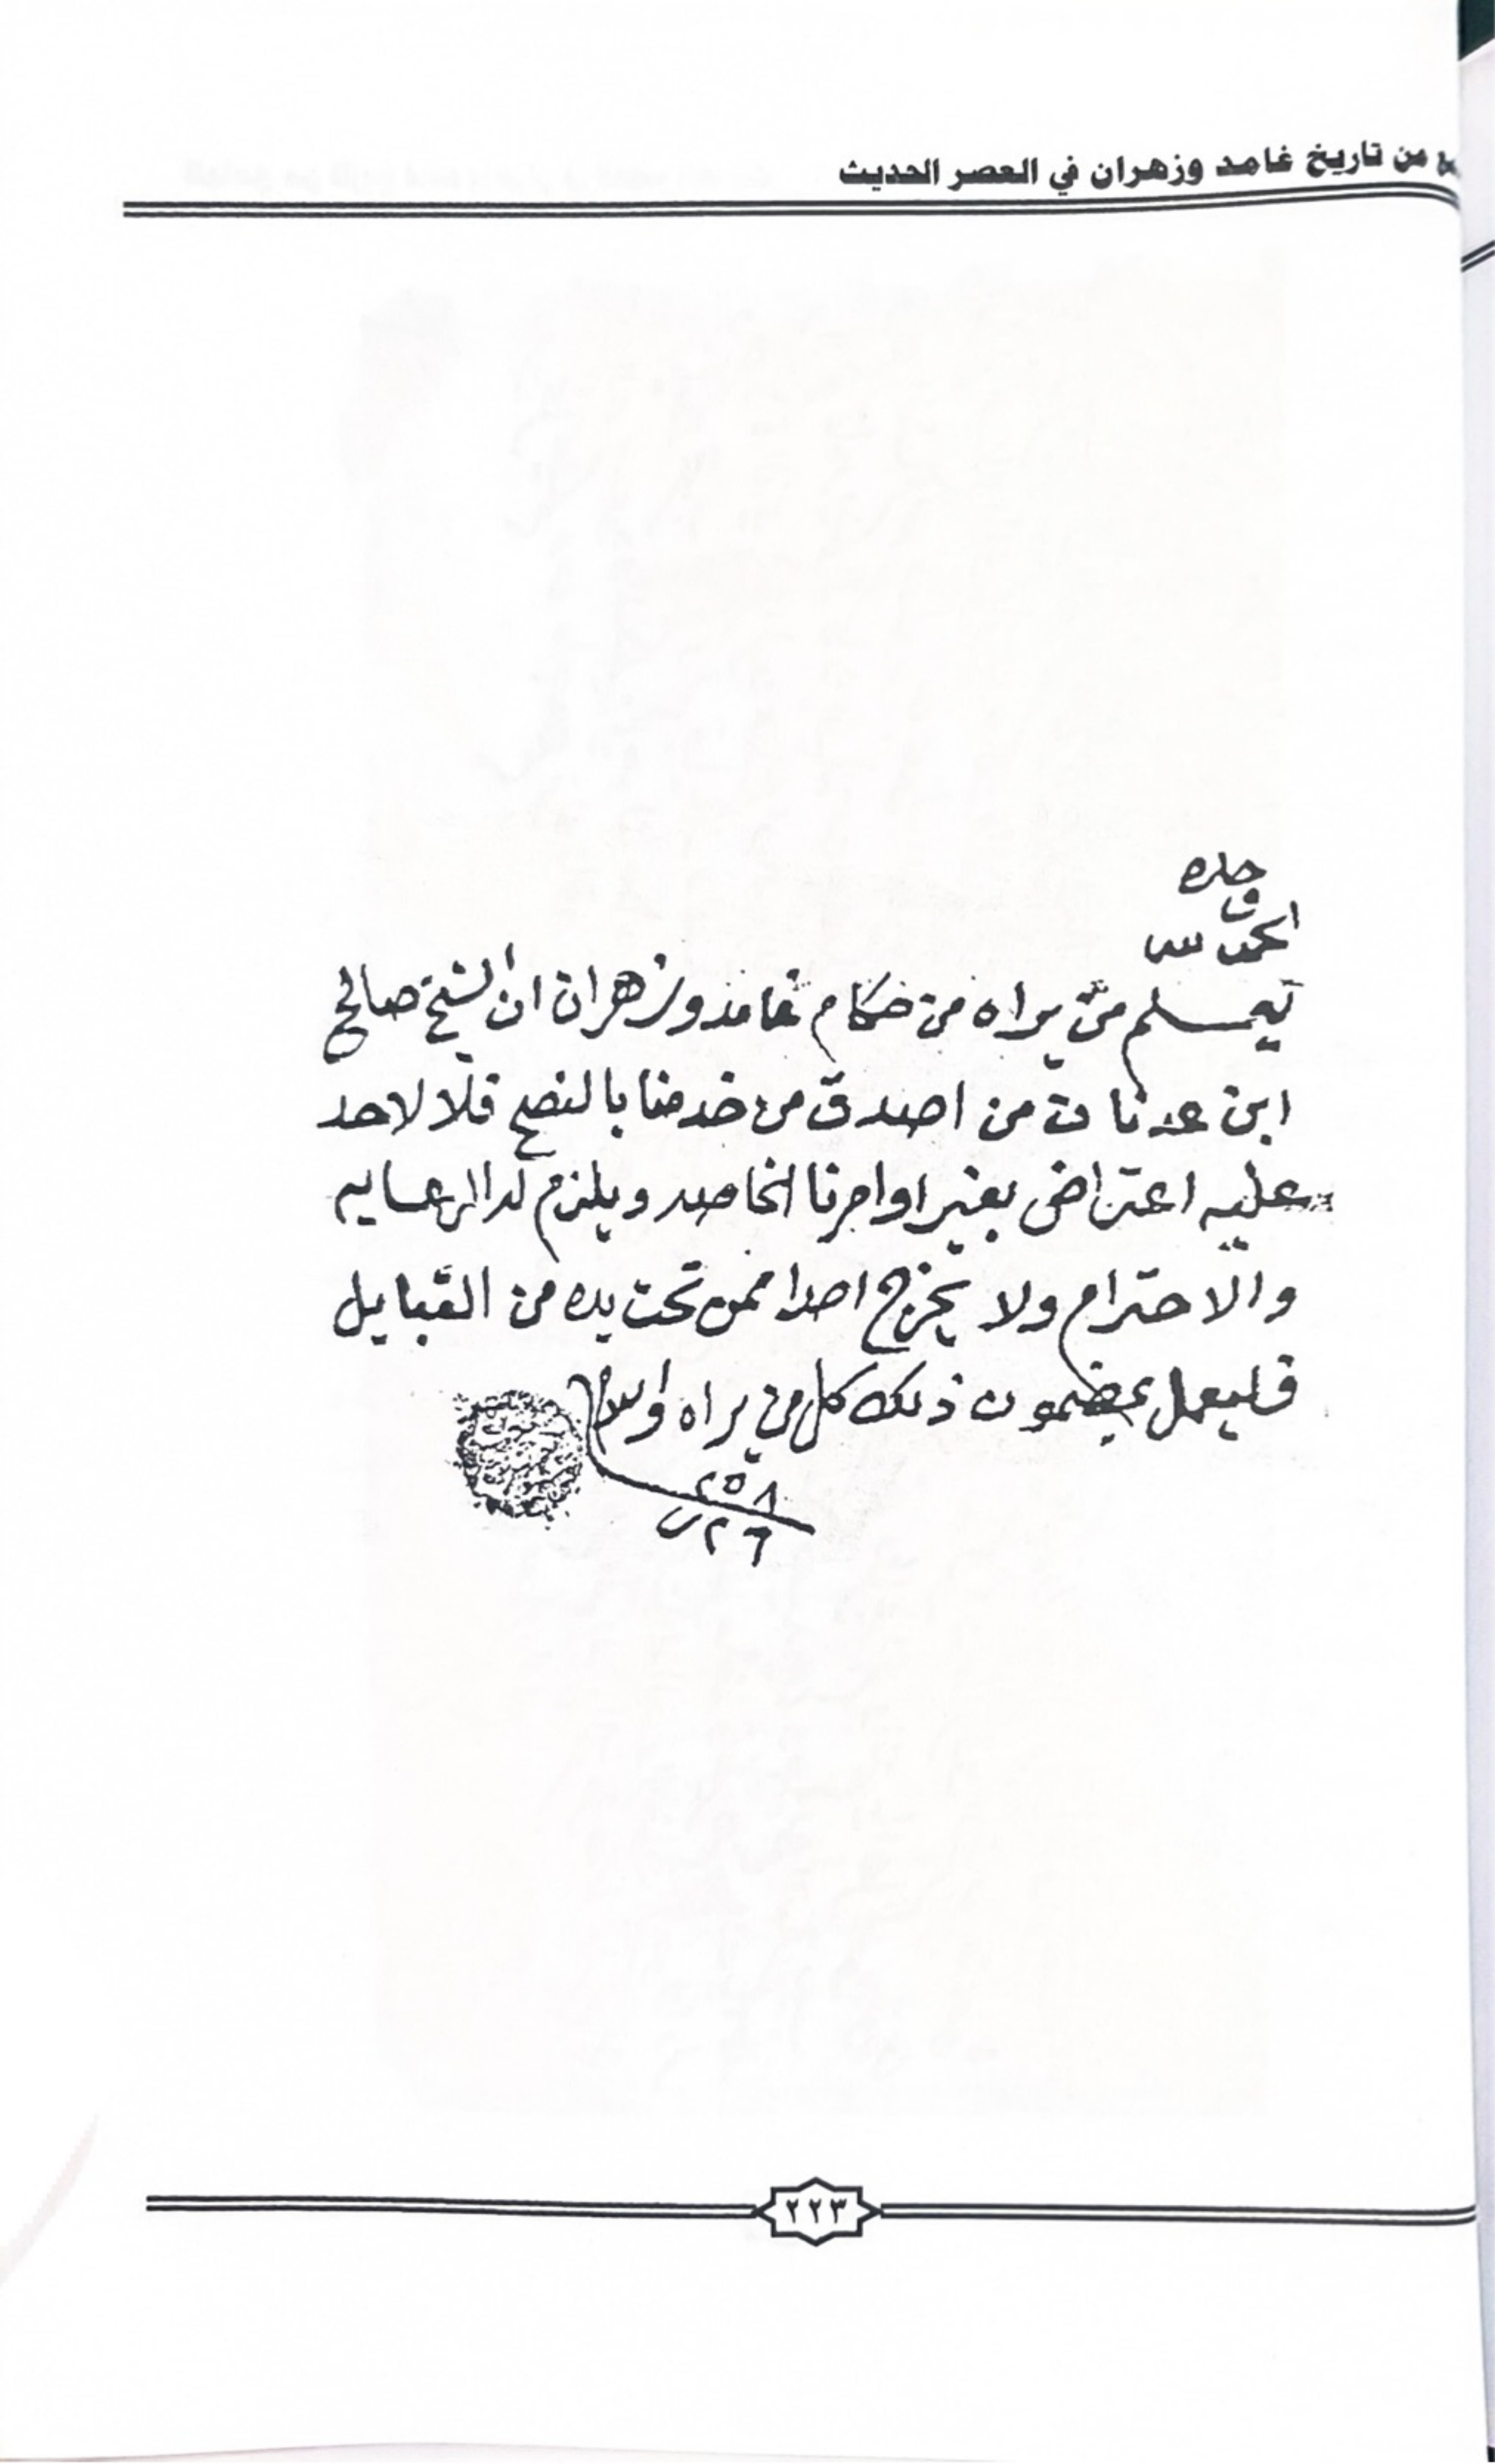 من تاريخ غامد وزهران في العصر الحديث
الحمد لله وحده
يعلم من يراه من حكام غامد وزهران ان الشيخ صالح
ابن عدنان من اصدق من خدمنا بالنصح فلا لاحد
عليه اعتراض بغير اوامرنا الخاصه ويلزم له الرعايه
والاحترام ولا يخرج احدا ممن تحت يده من القبايل
فليعمل بمضمون ذلك كل من يراه والسلام
٢٥٨
٢٦ ر
٢٢٣